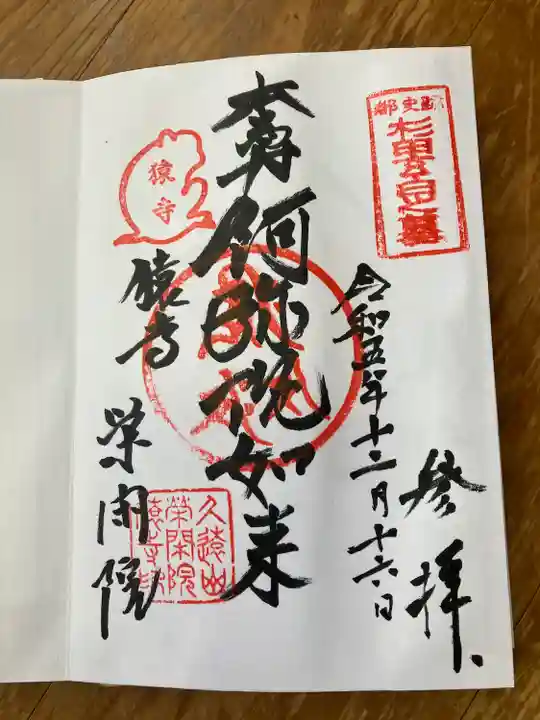 都史蹟
杉田玄白之墓
参拝
令和五年十二月十六日
本尊阿弥陀如来
猿寺
猿寺
栄閑院
久遠山
栄閑院
猿寺